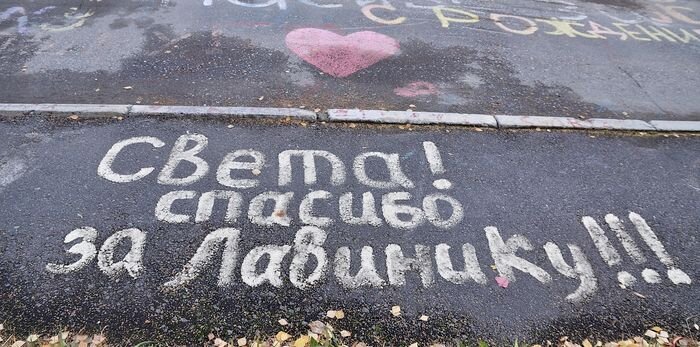 с рождения
Света!
спасибо
за Лавинику!!!